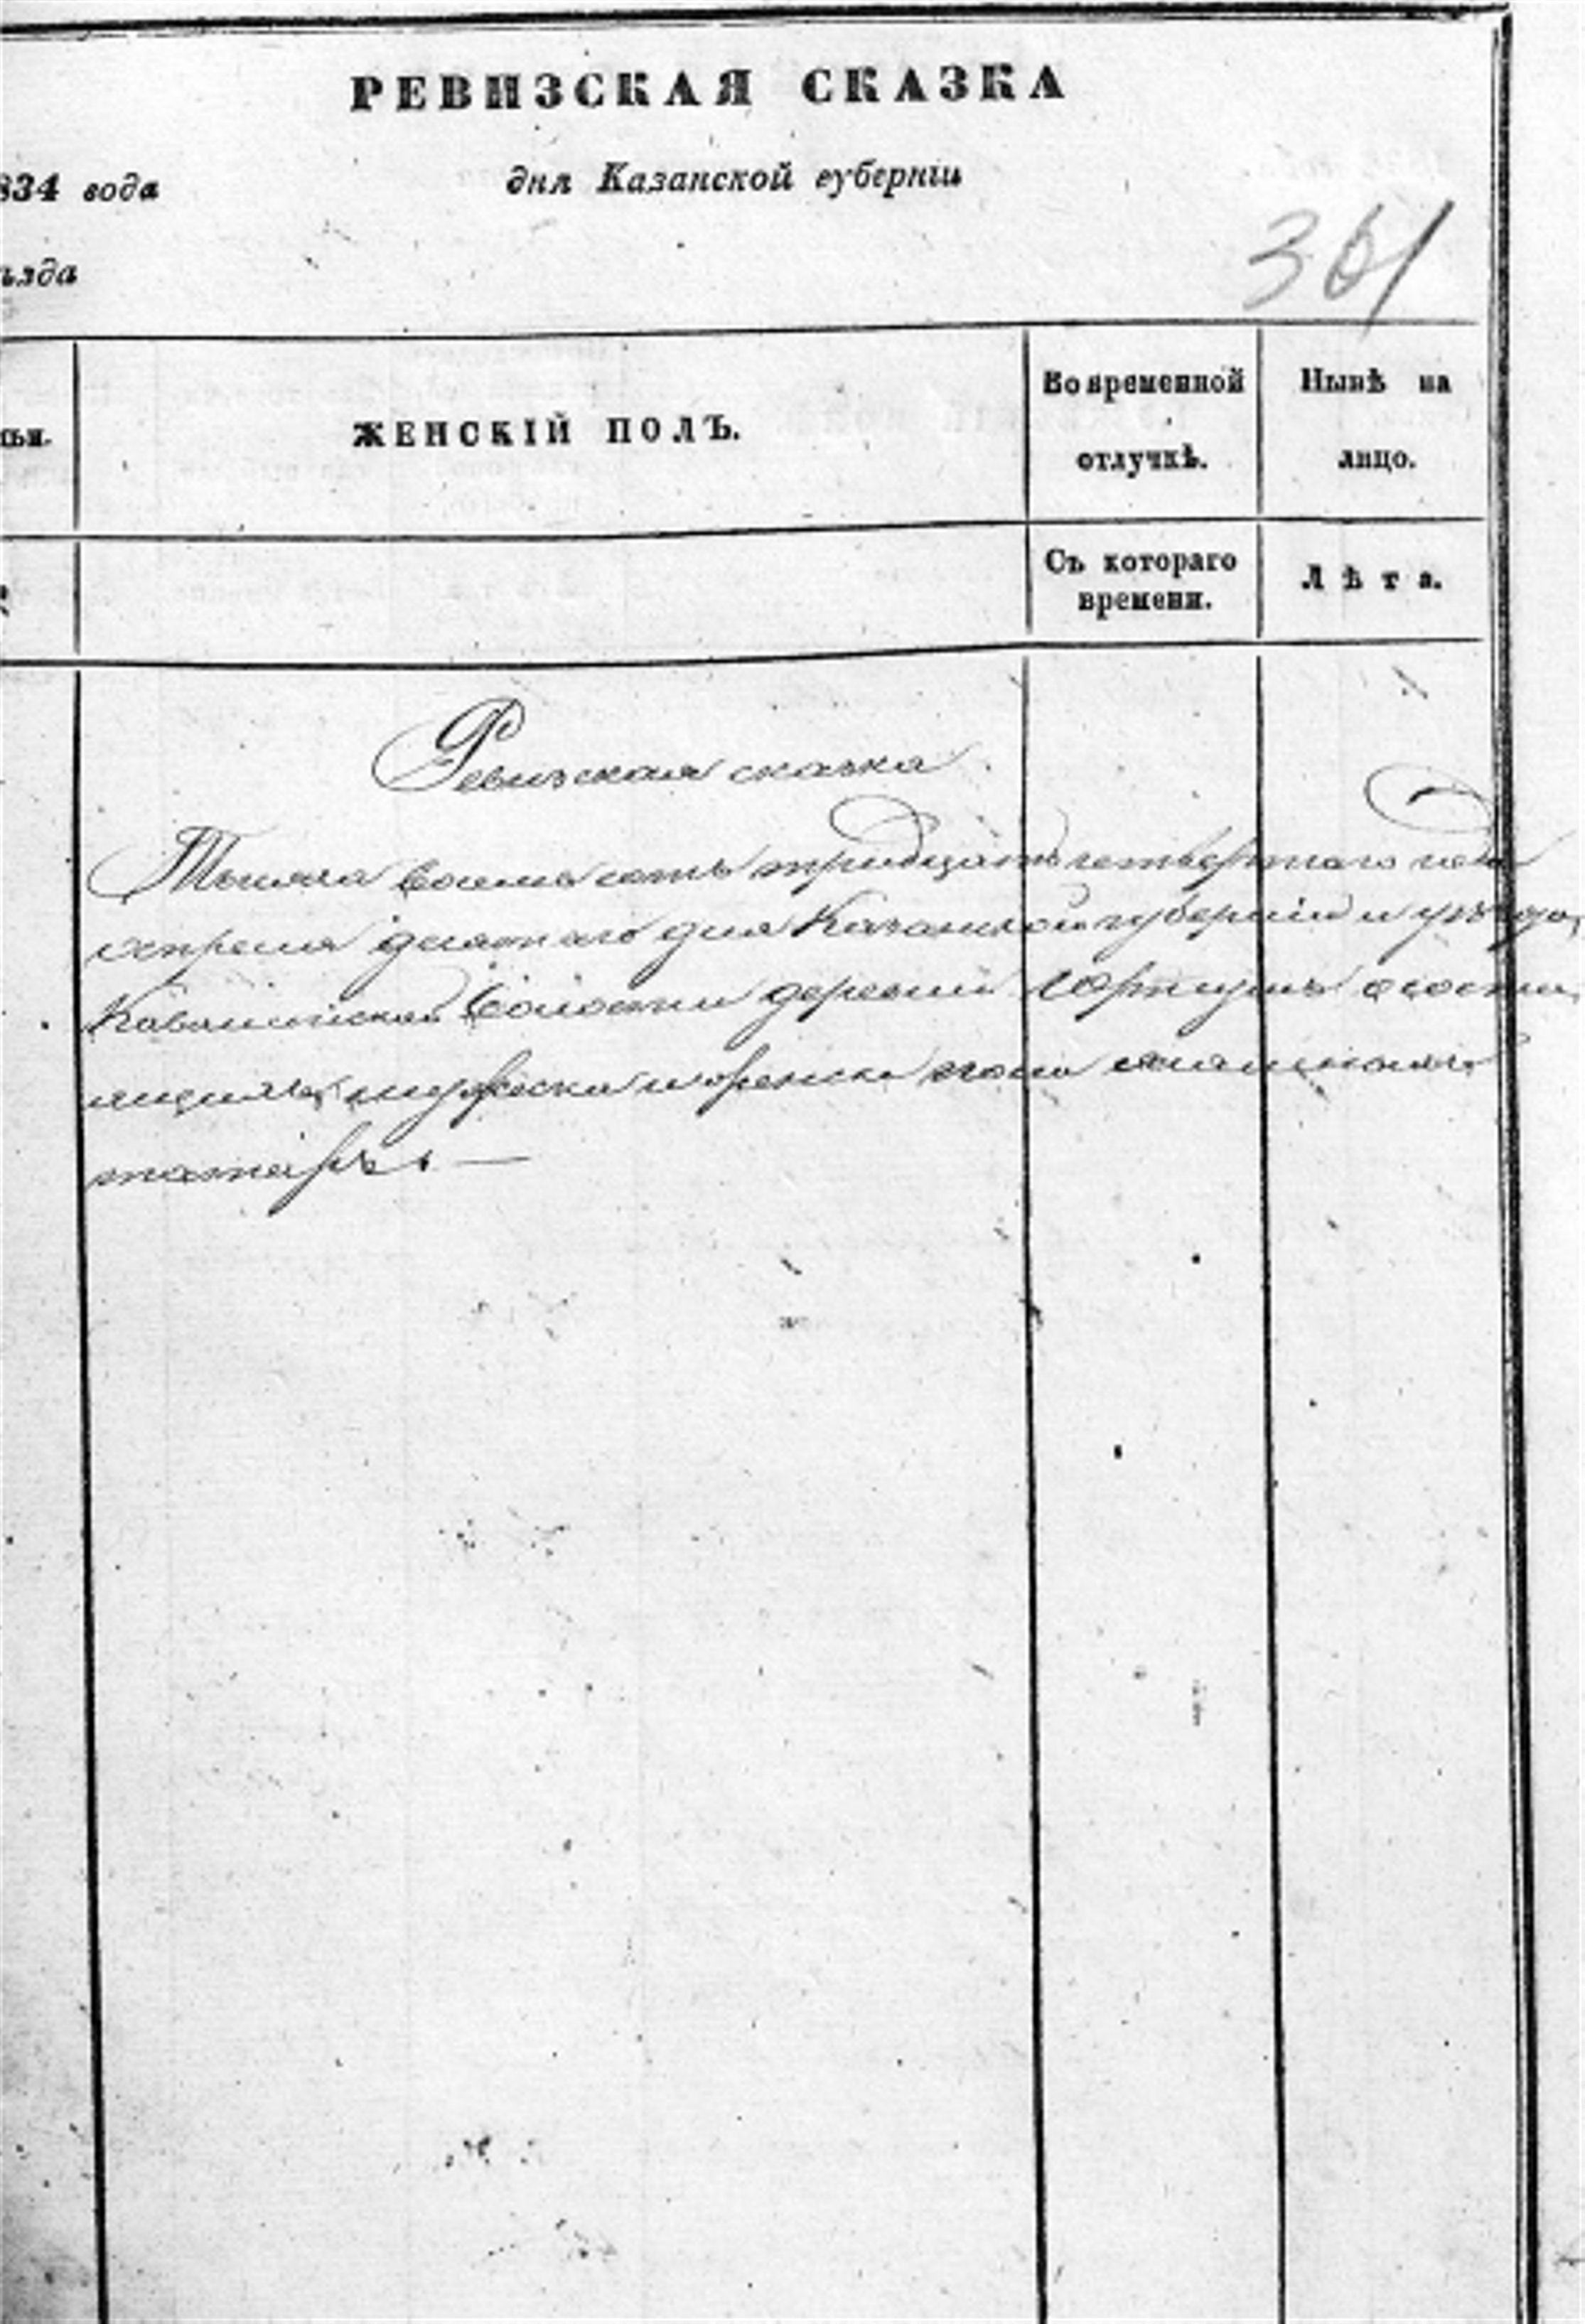 РЕВИЗСКАЯ СКАЗКА
834 года
дня Казанской губерніи
ѣзда
301
ЖЕНСКІЙ ПОЛЪ.
Во временной отлучкѣ.
Нынѣ на лицо.
Съ котораго времени.
Лѣта.
Ревизская сказка
Тысяча восемь сотъ тридцать четвертаго года
апреля десятаго дня Казанской губерніи и уѣзда,
волости деревни состо
ящихъ мужеска и женска пола
татаръ